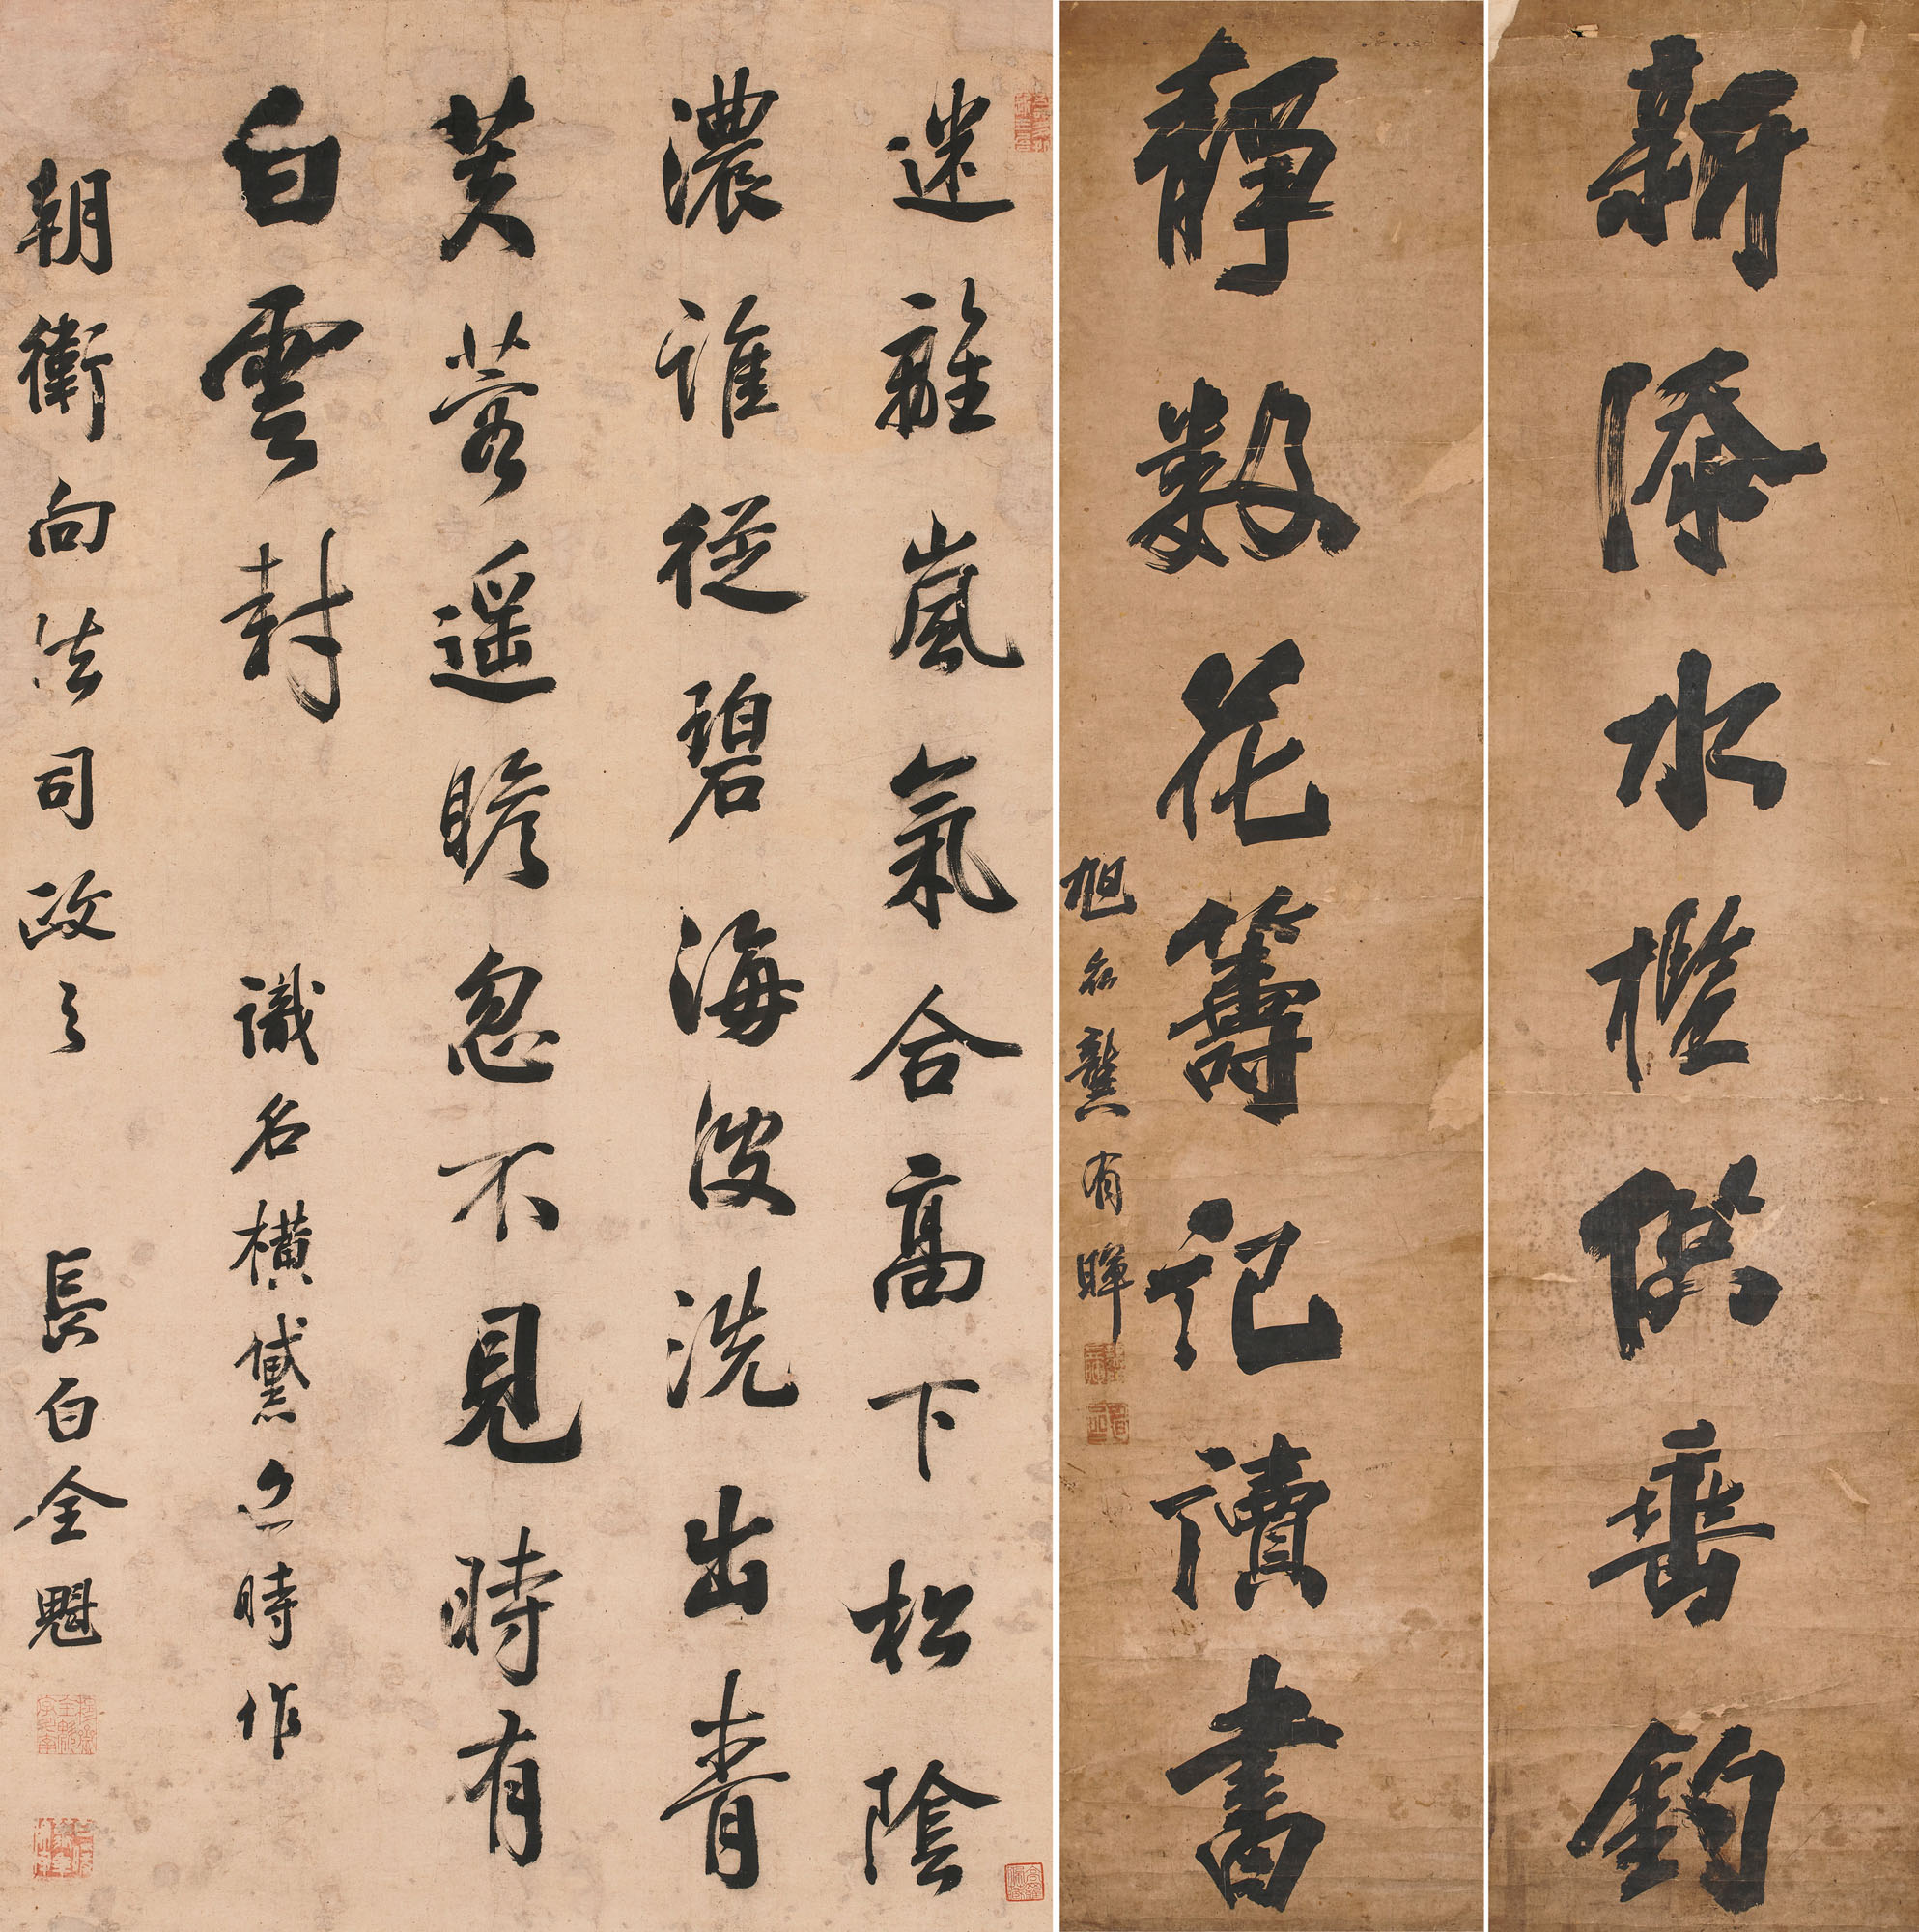 新添水檻供垂釣
靜數花籌記讀書
旭齋龔有暉
迷離嵐氣合高下松陰
濃誰從碧海波洗出青
芙蓉遥瞻忽不見時有
白雲封 識名橫黛時作
朝衛向法司政之 長白全魁